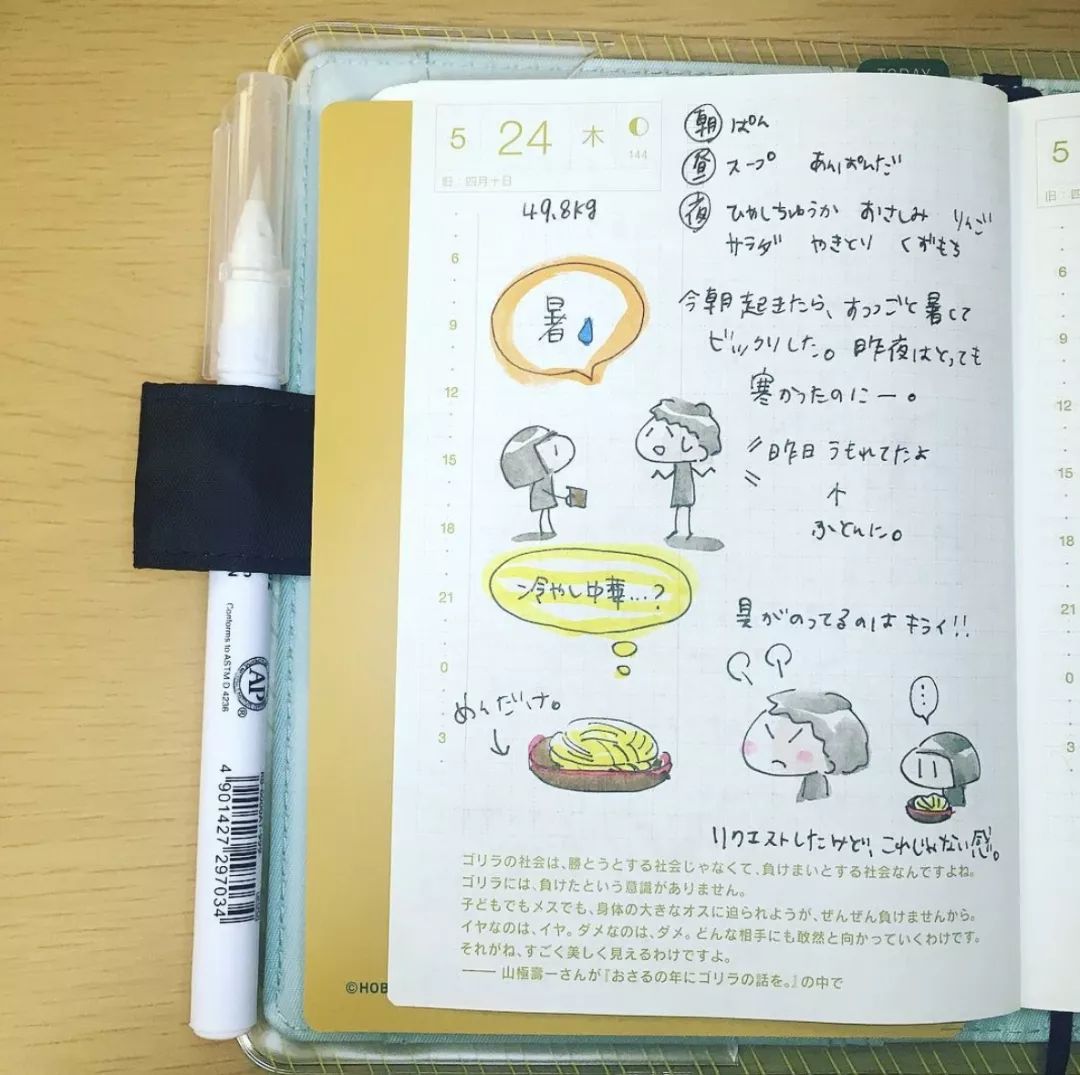 TODAY
5 24 木
144
旧:四月十日
朝 ぱん
昼 スープ あんぱんだ
夜 ひやしちゅうか おさしみ りんご
サラダ やきとり くずもち
49.8kg
暑
今朝起きたら、すっごと暑くて
ビックリした。昨夜はとっても
寒かったのにー。
昨日うもれてたよ
ふとんに。
冷やし中華…?
具がのってるのはキライ!!
めんだけ。
…
リクエストしたけど、これじゃない感。
6
9
12
15
18
21
0
3
ゴリラの社会は、勝とうとする社会じゃなくて、負けまいとする社会なんですよね。
ゴリラには、負けたという意識がありません。
子どもでもメスでも、身体の大きなオスに迫られようが、ぜんぜん負けませんから。
イヤなのは、イヤ。ダメなのは、ダメ。どんな相手にも敢然と向かっていくわけです。
それがね、すごく美しく見えるわけですよ。
―― 山極壽一さんが『おさるの年にゴリラの話を。』の中で
©HOB
Conforms to ASTM D 4236
AP
4 901427 297034
5
旧:四
6
9
12
15
18
21
0
3